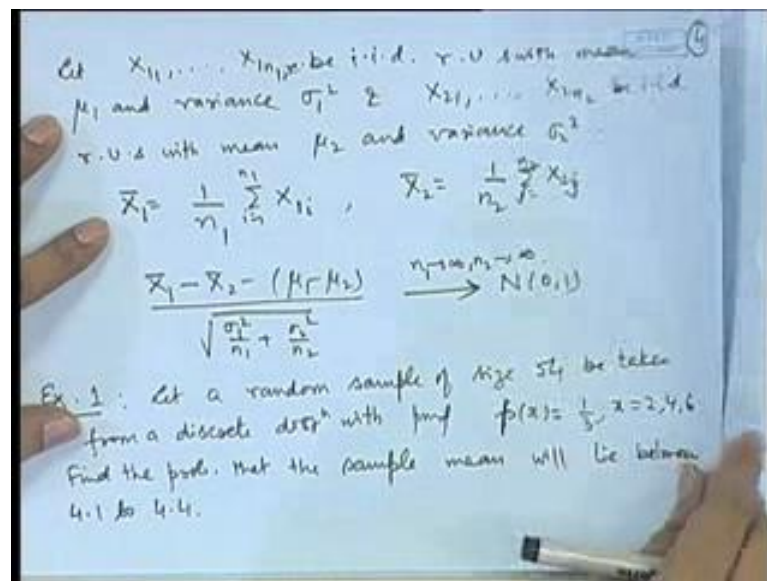 4
Let X11, .... X1n1, be i.i.d. r.v.s with mean
μ1 and variance σ1² & X21, .... X2n2 be i.i.d
r.v.s with mean μ2 and variance σ2².
X̄1 = 1/n1 Σ_{i=1}^{n1} X1i , X̄2 = 1/n2 Σ_{j=1}^{n2} X2j
(X̄1 - X̄2 - (μ1 - μ2)) / √(σ1²/n1 + σ2²/n2) → N(0,1) n1→∞, n2→∞.
Ex. 1 : Let a random sample of size 54 be taken
from a discrete distⁿ with pmf p(x) = 1/3, x = 2,4,6
Find the prob. that the sample mean will lie between
4.1 to 4.4.